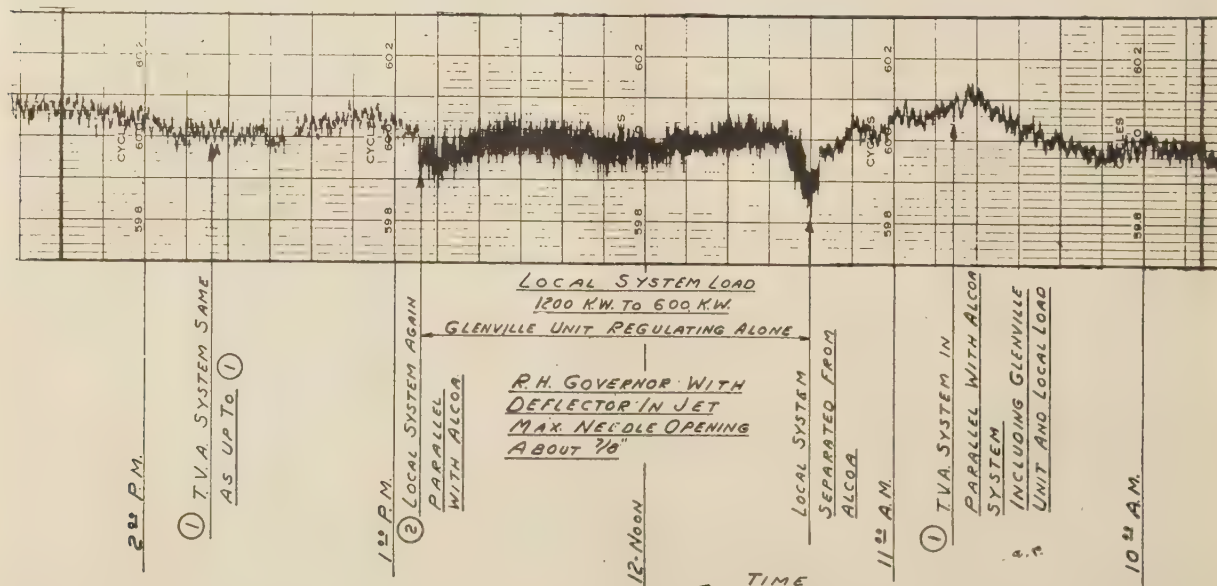 60.2
60.2
60.2
60.2
CYCLES
60.0
CYCLES
60.0
CYCLES
60.0
59.8
59.8
59.8
59.8
LOCAL SYSTEM LOAD
1200 K.W. TO 600 K.W.
GLENVILLE UNIT REGULATING ALONE
R.H. GOVERNOR WITH
DEFLECTOR IN JET
MAX. NEEDLE OPENING
ABOUT 7/8"
2 00 P.M.
① T.V.A. SYSTEM SAME
AS UP TO ①
1 00 P.M.
② LOCAL SYSTEM AGAIN
PARALLEL
WITH ALCOA
12-NOON
LOCAL SYSTEM
SEPARATED FROM
ALCOA
11 00 A.M.
① TVA SYSTEM IN
PARALLEL WITH ALCOA
SYSTEM
INCLUDING GLENVILLE
UNIT AND LOCAL LOAD
10 00 A.M.
TIME